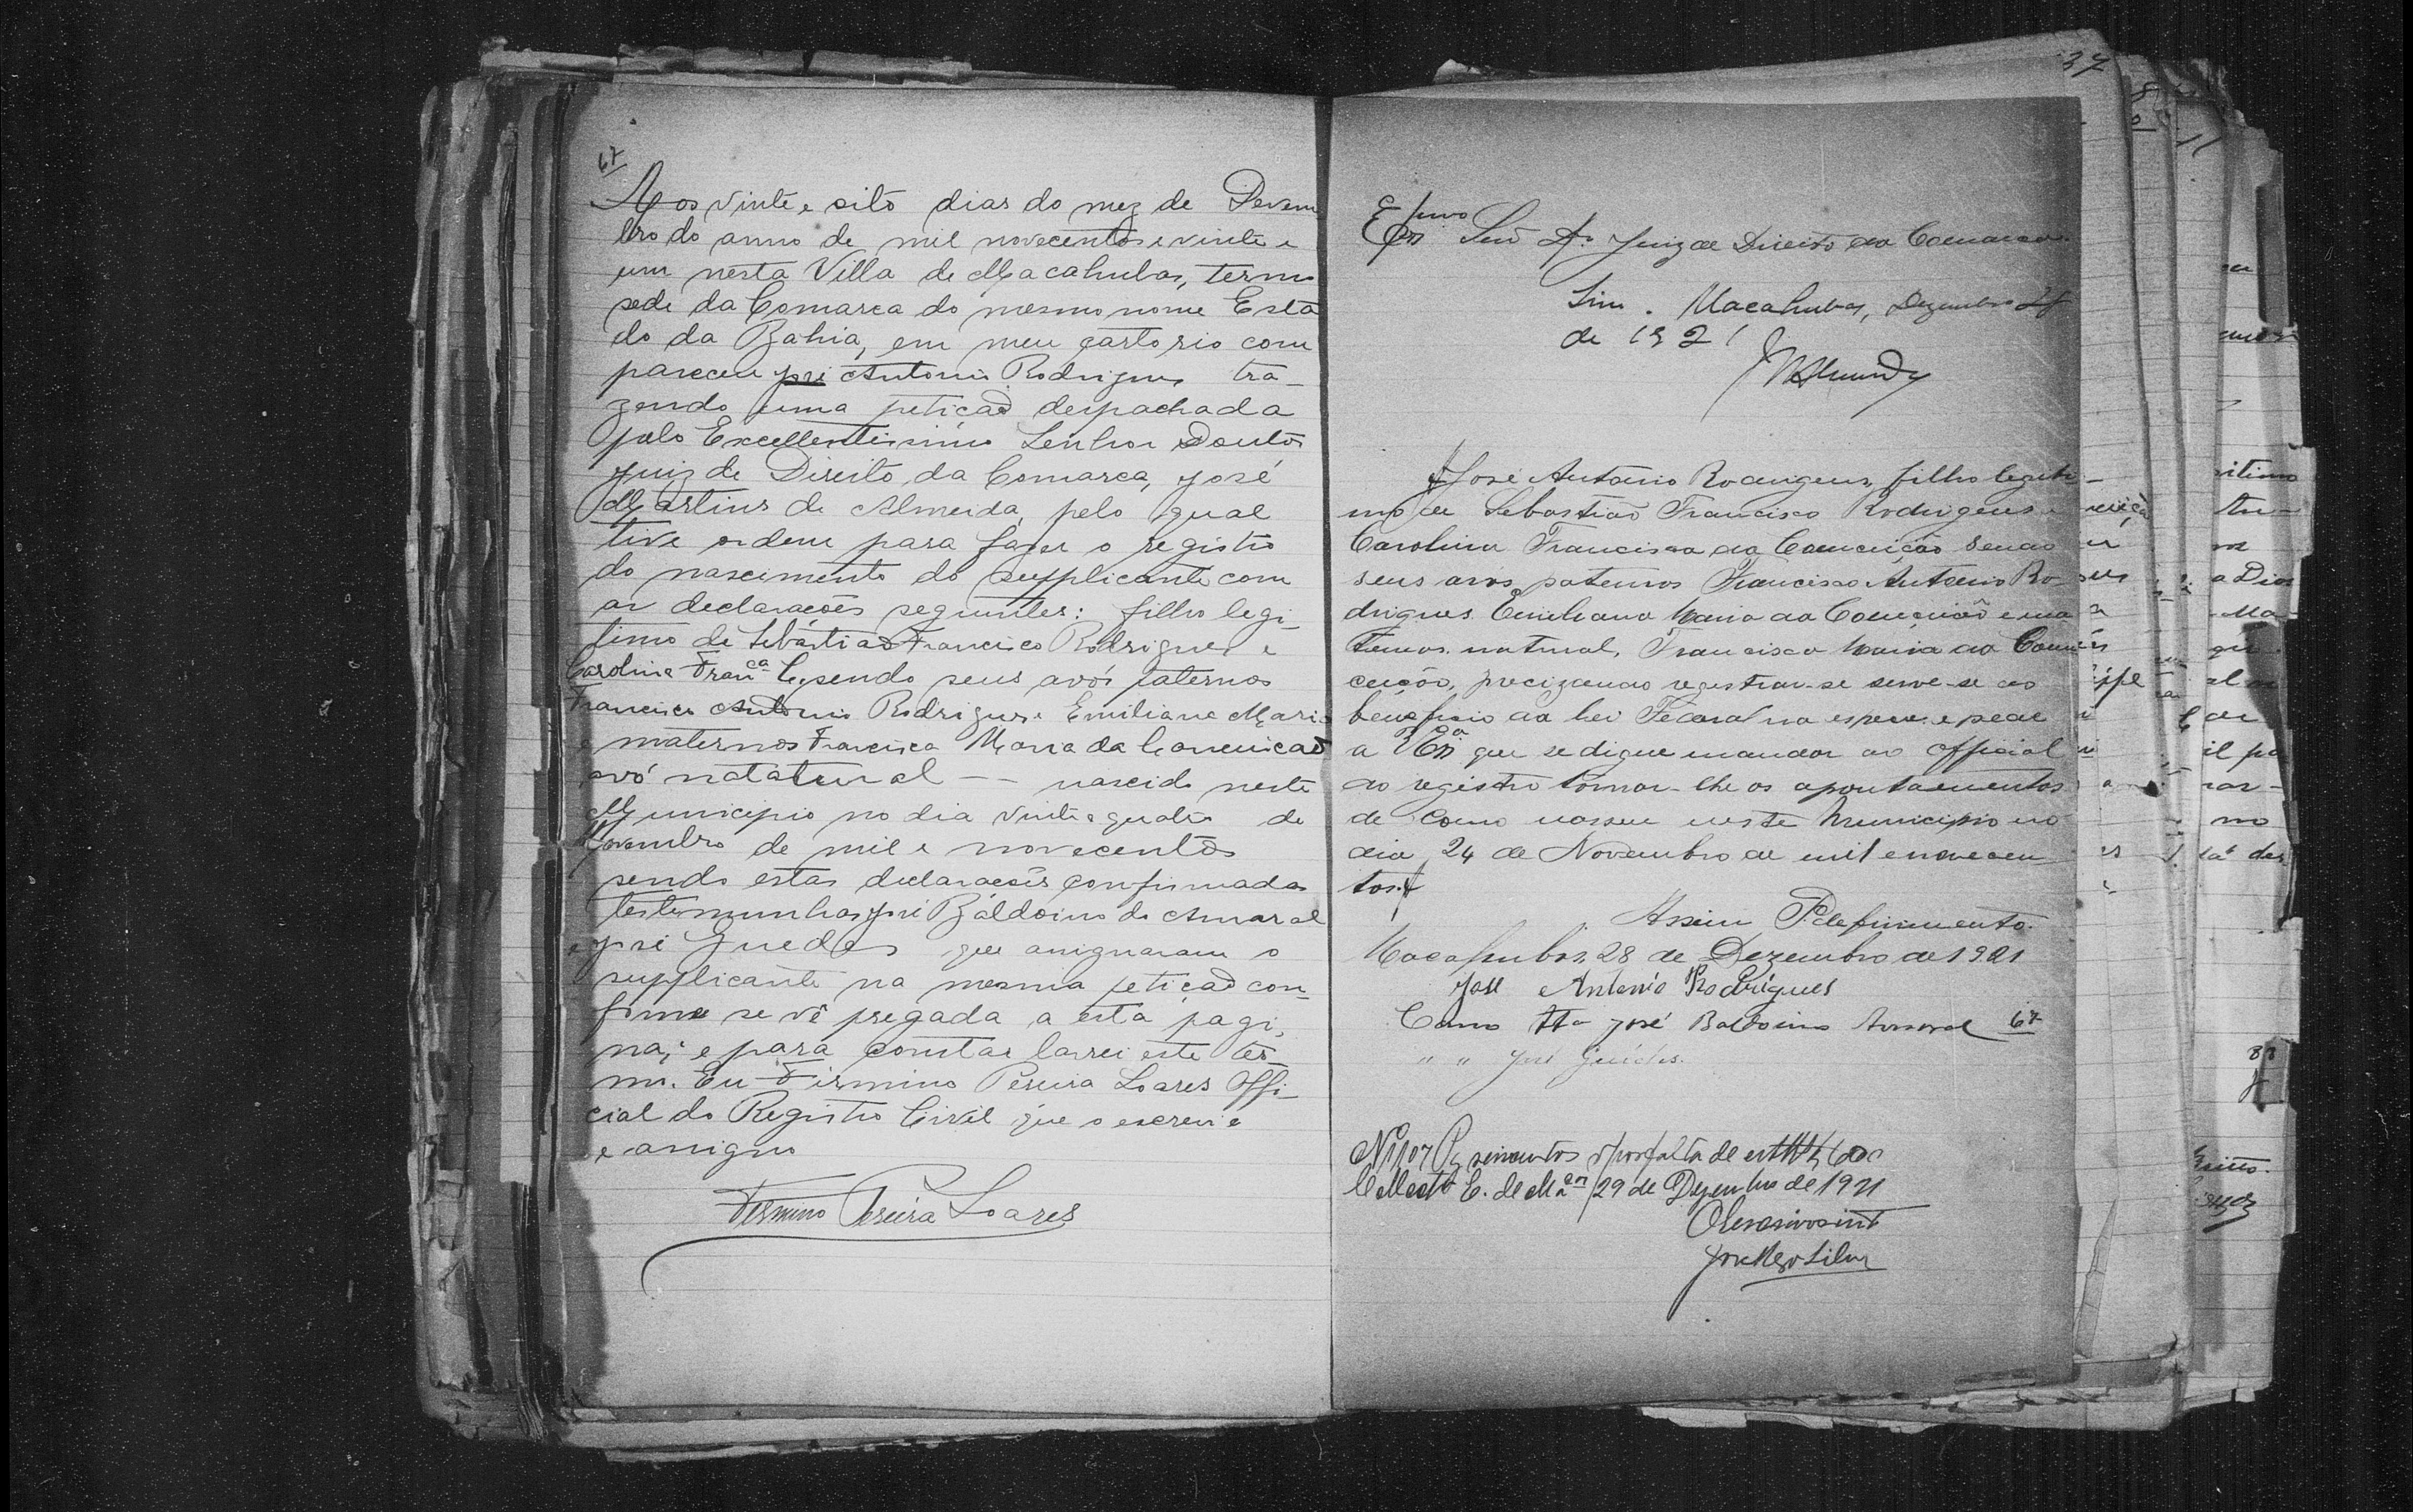 67
Aos vinte e oito dias do mez de Dezem
bro do anno de mil novecentos e vinte e
um nesta Villa de Macahubas, termo
sede da Comarca do mesmo nome Esta
do da Bahia, em meu cartorio com
pareceu José Antonio Rodrigues tra-
zendo uma petição despachada
pelo Excellentissimo Senhor Doutor
Juiz de Direito da Comarca, José
Martins de Almeida, pelo qual
tive ordem para fazer o registro
do nascimento do supplicante com
as declarações seguintes: filho legi-
timo de Sebastião Francisco Rodrigues e
Carolina Franca C. sendo seus avós paternos
Francisco Antonio Rodrigues e Emiliana Maria
e maternos Francisca Maria da Conceicão
avó natatural -- nascido neste
Municipio no dia vinte e quatro de
Novembro de mil e novecentos
sendo estas declarações confirmadas
testemunhas José Baldoino do Amaral
e José Guedes que assignaram o
supplicante na mesma petição con-
forme se vê pregada a esta pagi-
na; e para constar lavrei este ter-
mo. Eu Firmino Pereira Soares Offi-
cial do Registro Civil que o escrevi e
e assigno
Firmino Pereira Soares
37
Exmo Snr Dr Juiz de Direito da Comarca.
Sim. Macahubas, Dezembro 28
de 1921
José Antonio Rodrigues, filho legiti-
mo de Sebastião Francisco Rodrigues e
Carolina Francisca da Conceição sendo
seus avos paternos Francisco Antonio Ro-
drigues Emiliana Maria da Conceição e ma
ternos natural, Francisca Maria da Con
ceição, precizando registrar-se serve-se do
beneficio da lei Federal na espera e pede
a V Exa que se digne mandar ao official
do registro tomar-lhe os apontamentos
de como nasceu neste Municipio no
dia 24 de Novembro de mil e novecen
tos.
Assim P. deferimento.
Macahubas 28 de Dezembro de 1921
José Antonio Rodrigues
Como tta José Baldoino Amaral 67
" " José Guedes.
Nº 1107 Pg seiscentos rs por falta de 600
Collecta E. de Mas 29 de Dezembro de 1921